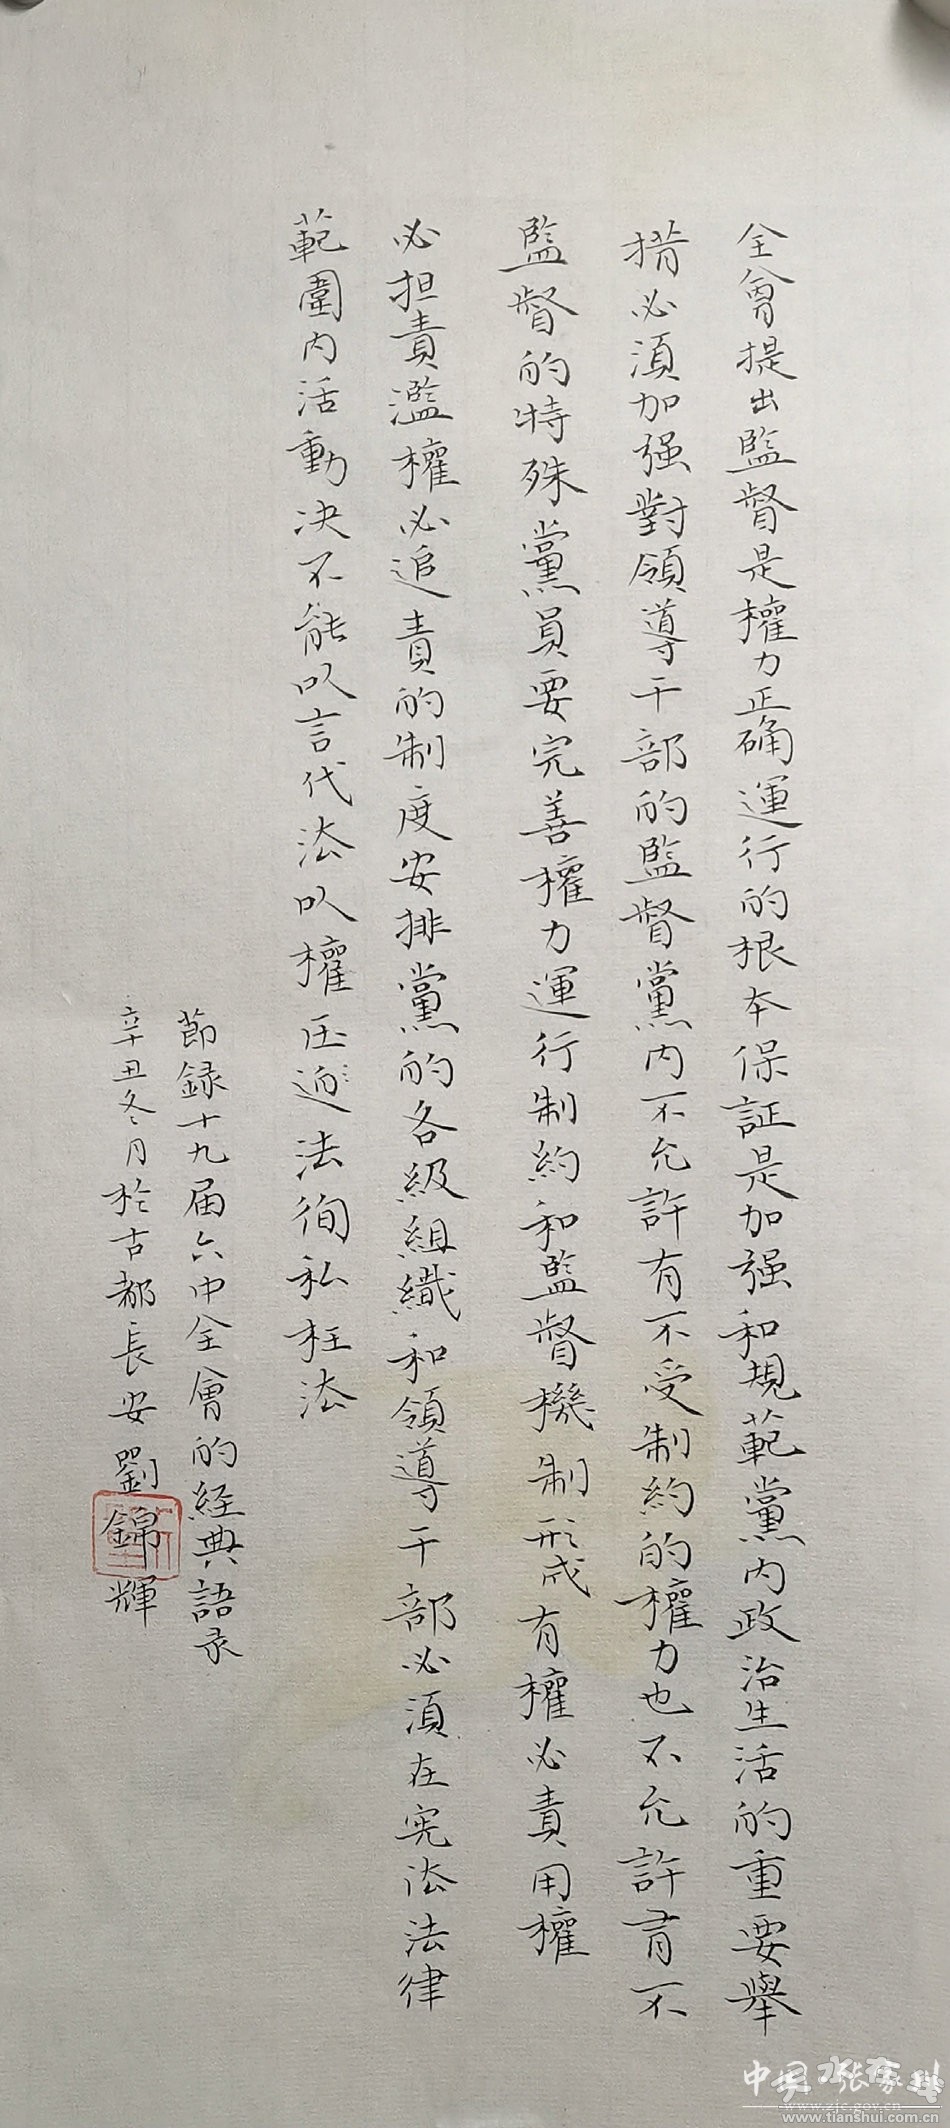 全會提出監督是權力正确運行的根本保証是加强和規範黨内政治生活的重要舉
措必須加强對領導干部的監督黨内不允許有不受制約的權力也不允許有不
監督的特殊黨員要完善權力運行制約和監督機制形成有權必責用權
必担責濫權必追責的制度安排黨的各級組織和領導干部必須在宪法法律
範圍内活動决不能以言代法以權压迫法徇私枉法
節録十九届六中全會的经典語录
辛丑冬月於古都長安劉錦輝
www.zjc.gov.cn
www.tianshui.com.cn